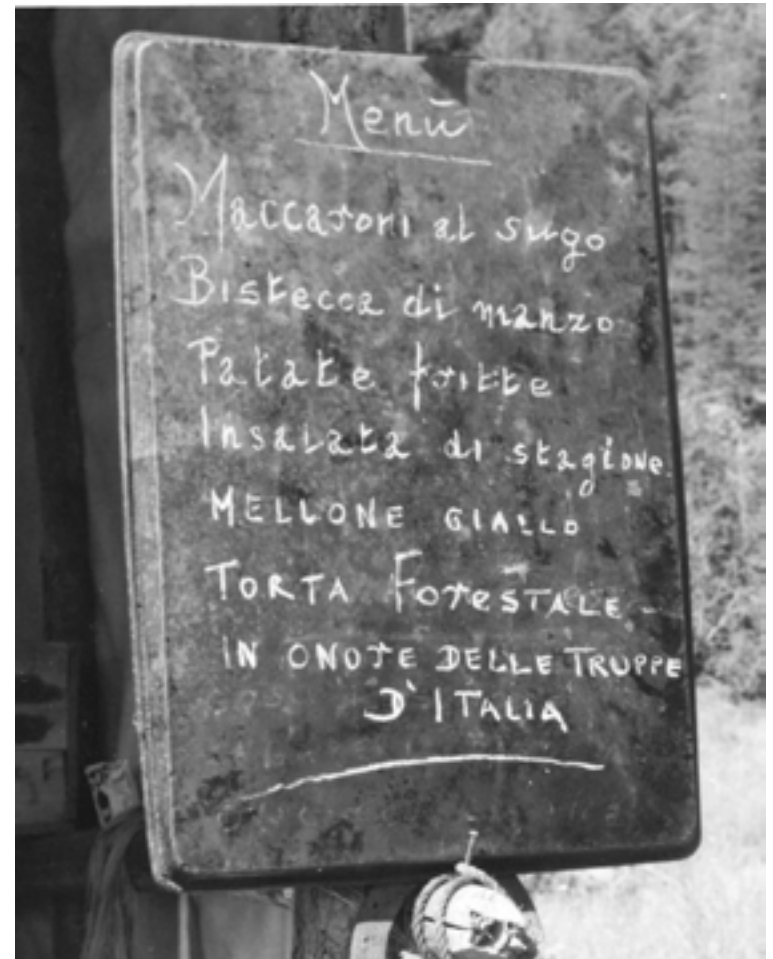 Menū
Maccaroni al sugo
Bistecca di manzo
Patate fritte
Insalata di stagione
MELLONE GIALLO
TORTA ForeSTALE
IN ONORE DELLE TRUPPE
D'ITALIA